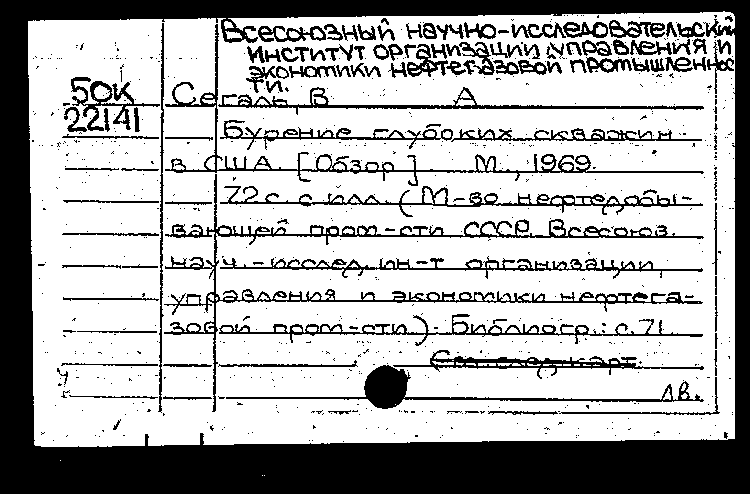 Всесоюзный научно-исследовательский
институт организации управления и
экономики нефтегазовой промышленнос
ти.
50К
22141
Сегаль, В А
Бурение глубоких скважин
в США. [Обзор] М., 1969.
72 с. с илл. (М-во нефтедобы-
вающей пром-сти СССР. Всесоюз.
науч.-исслед. ин-т организации,
управления и экономики нефтега-
зовой пром-сти). Библиогр.: с. 71.
(См. след. карт.
лв.